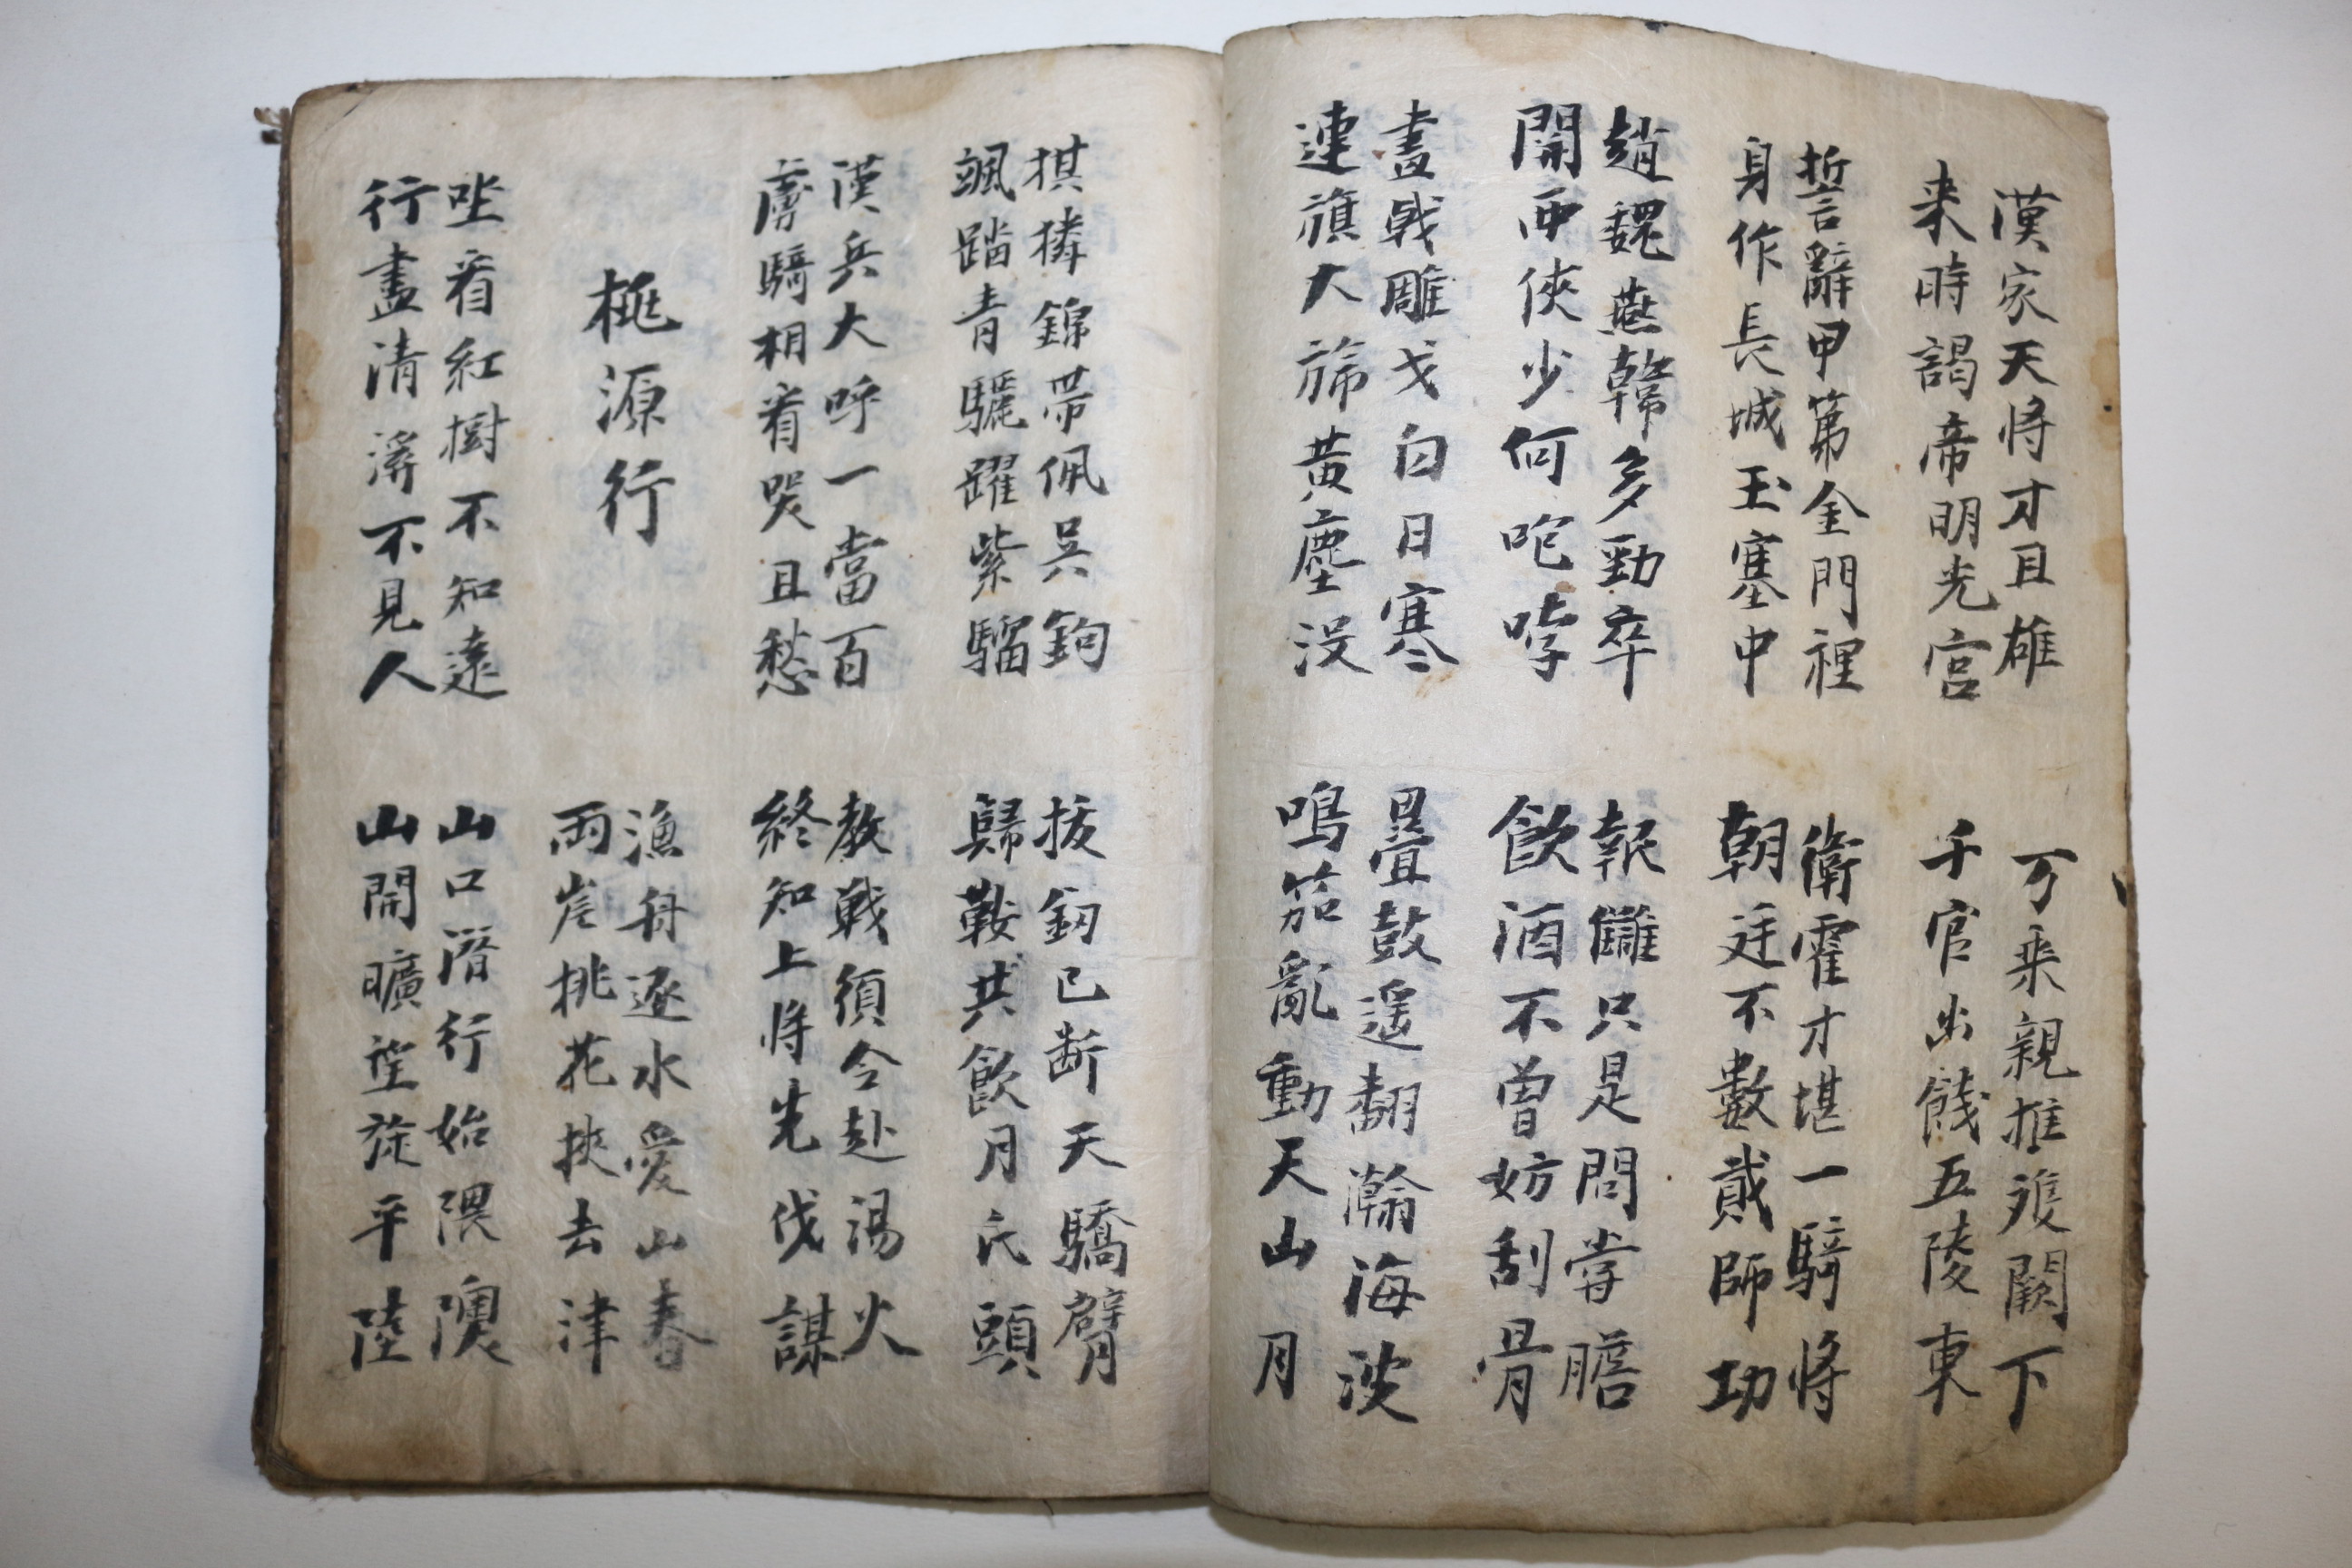 漢家天将才且雄
来時謁帝明光宮
万乘親推雙闕下
千官出餞五陵東
誓辭甲第金門裡
身作長城玉塞中
衛霍才堪一騎将
朝廷不數貳師功
趙魏燕韓多勁卒
開西俠少何咆哱
報讎只是問嘗膽
飲酒不曾妨刮骨
畫戟雕戈白日寒
連旗大旆黃塵沒
疊鼓遥翻瀚海波
鳴笳亂動天山月
棋獜錦帶佩吳鉤
颯踏青驪躍紫騮
拔釼已断天驕臂
歸鞍共飲月氏頭
漢兵大呼一當百
虜騎相看哭且愁
教戰須令赴湯火
終知上将先伐謀
桃源行
漁舟逐水愛山春
兩岸挑花挾去津
坐看紅樹不知遠
行盡清溪不見人
山口潛行始隈隩
山開曠望旋平陸